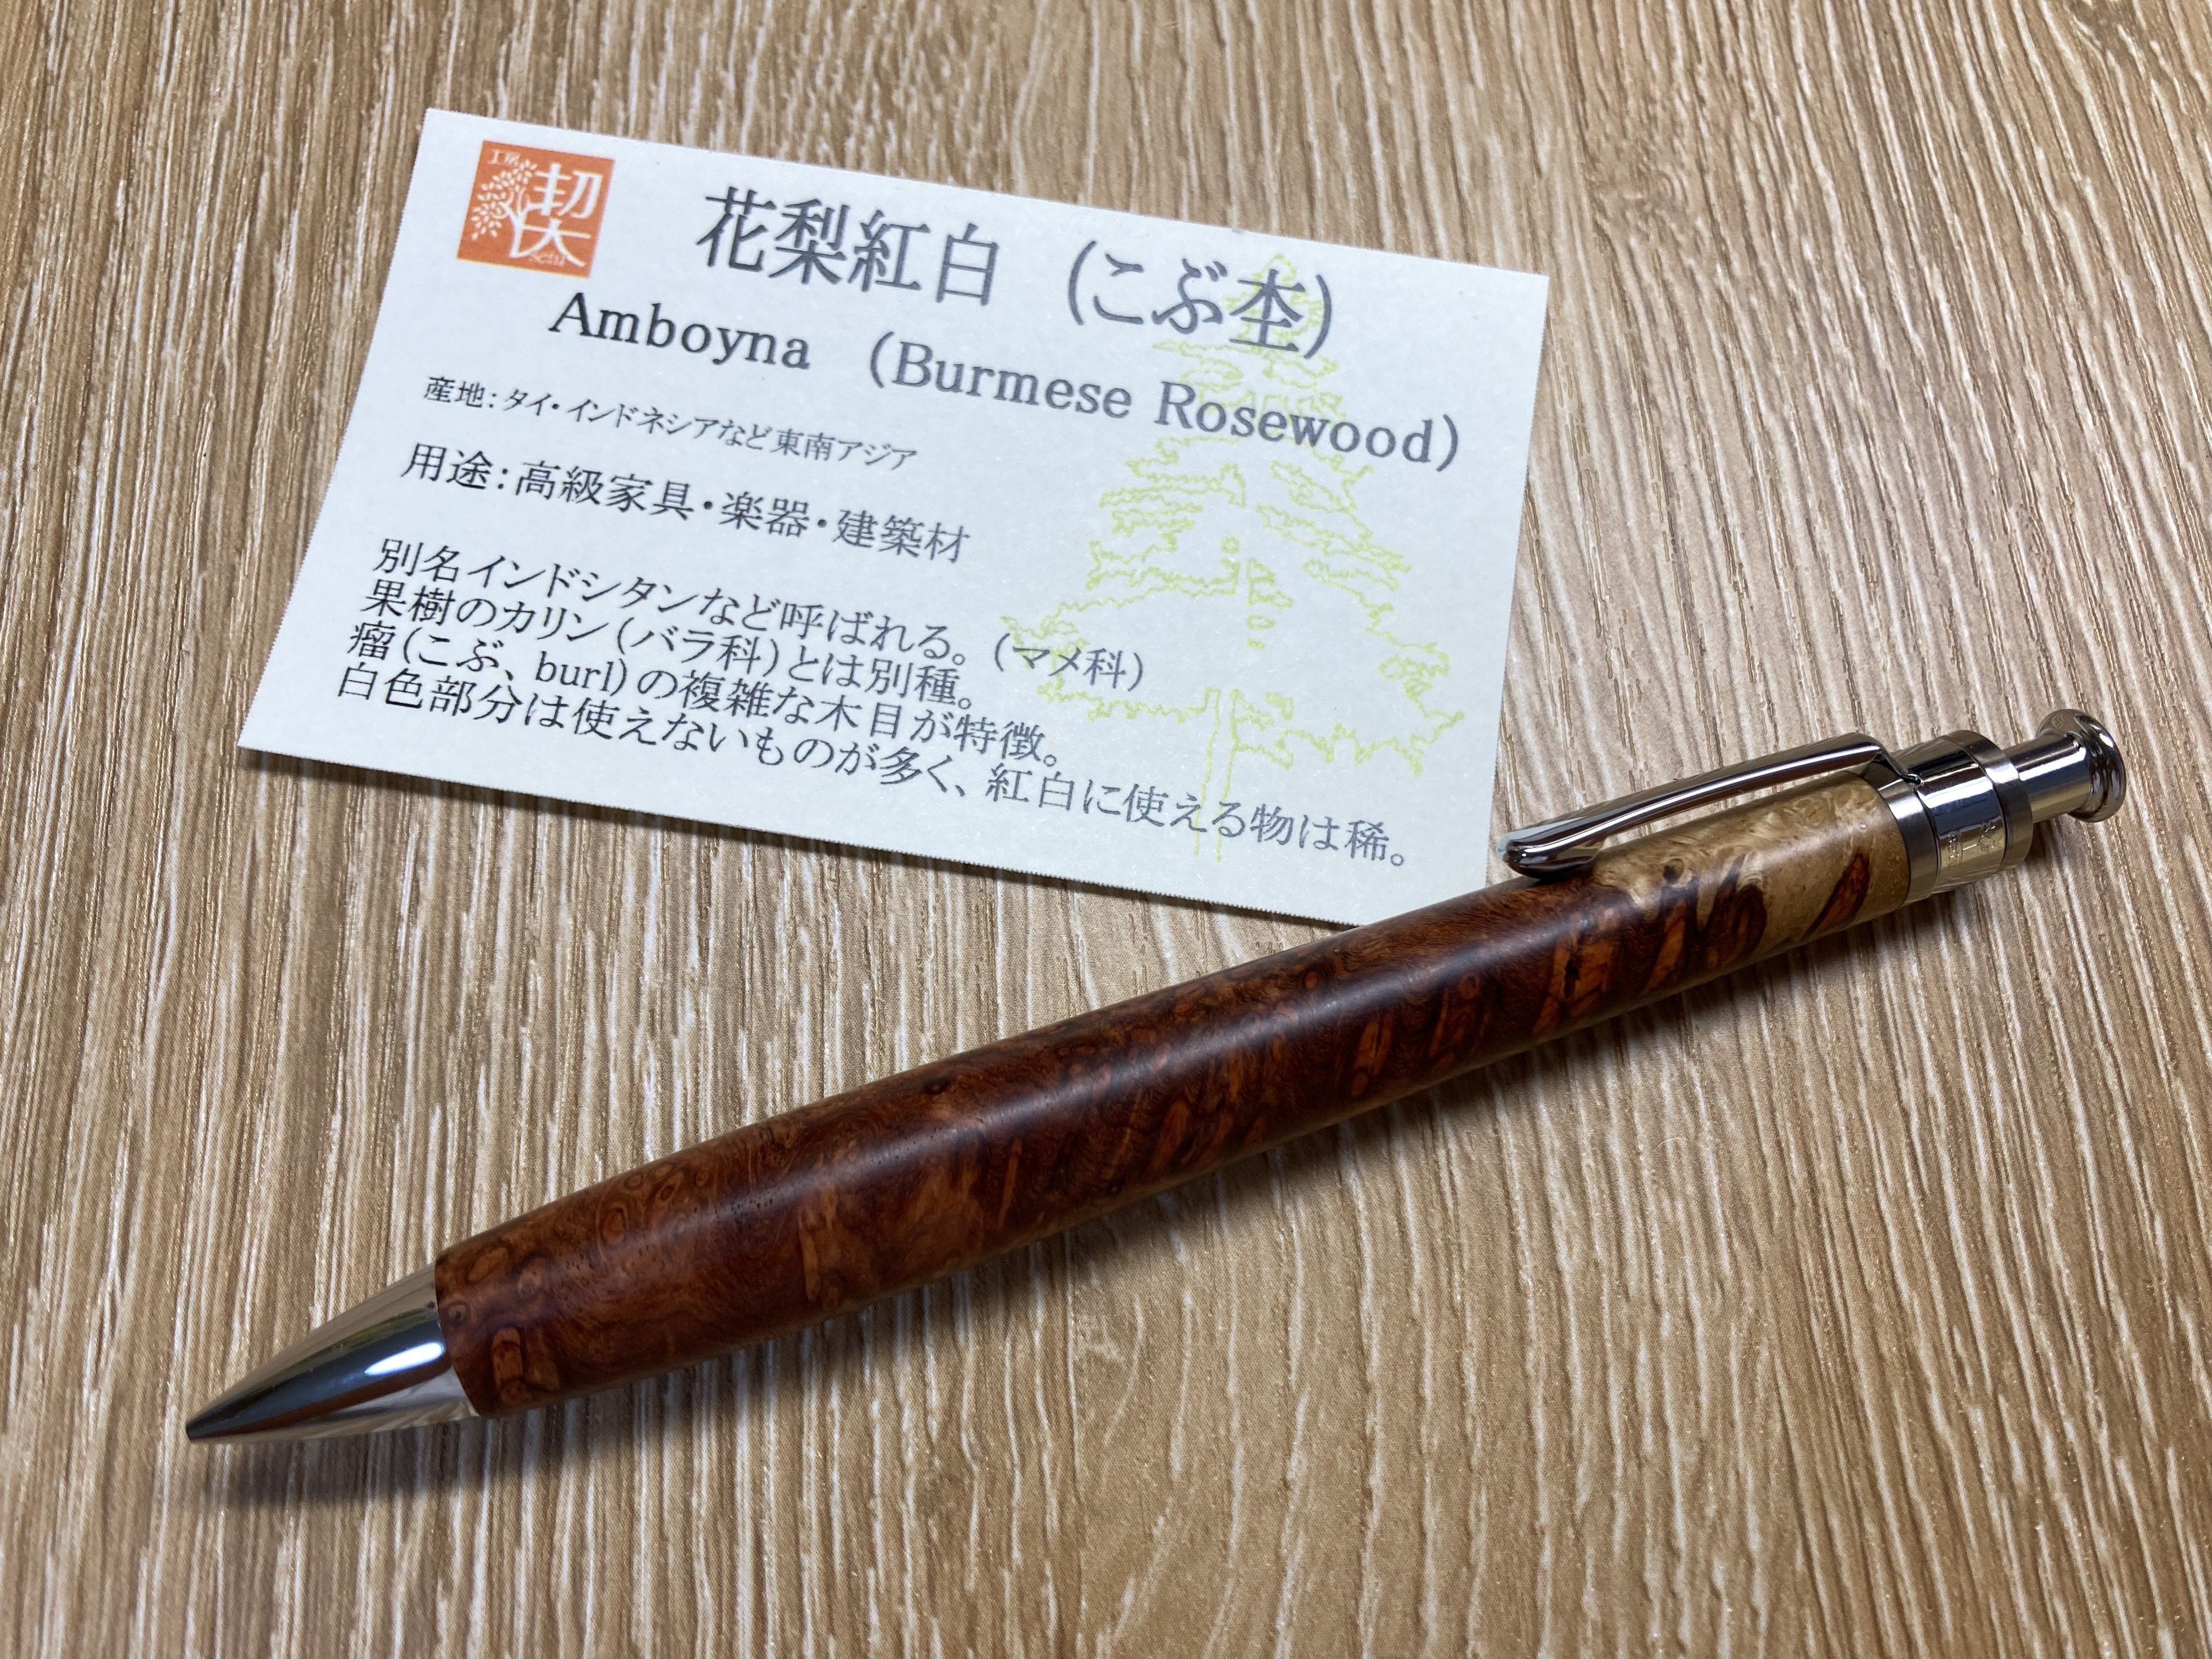 工房
契
Seki
花梨紅白 (こぶ杢)
Amboyna (Burmese Rosewood)
産地：タイ・インドネシアなど東南アジア
用途：高級家具・楽器・建築材
別名インドシタンなど呼ばれる。(マメ科)
果樹のカリン(バラ科)とは別種。
瘤(こぶ、burl)の複雑な木目が特徴。
白色部分は使えないものが多く、紅白に使える物は稀。